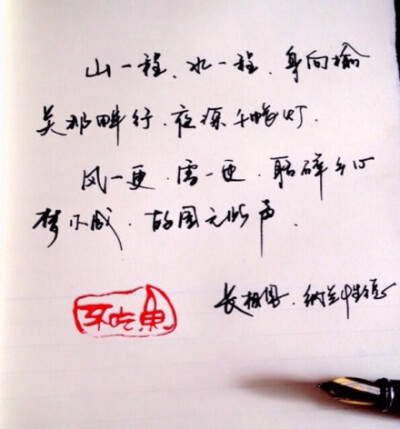 山一程、水一程、身向榆
关那畔行、夜深千帐灯.
风一更、雪一更、聒碎乡心
梦不成、故园无此声.
长相思、纳兰性德
不吃鱼